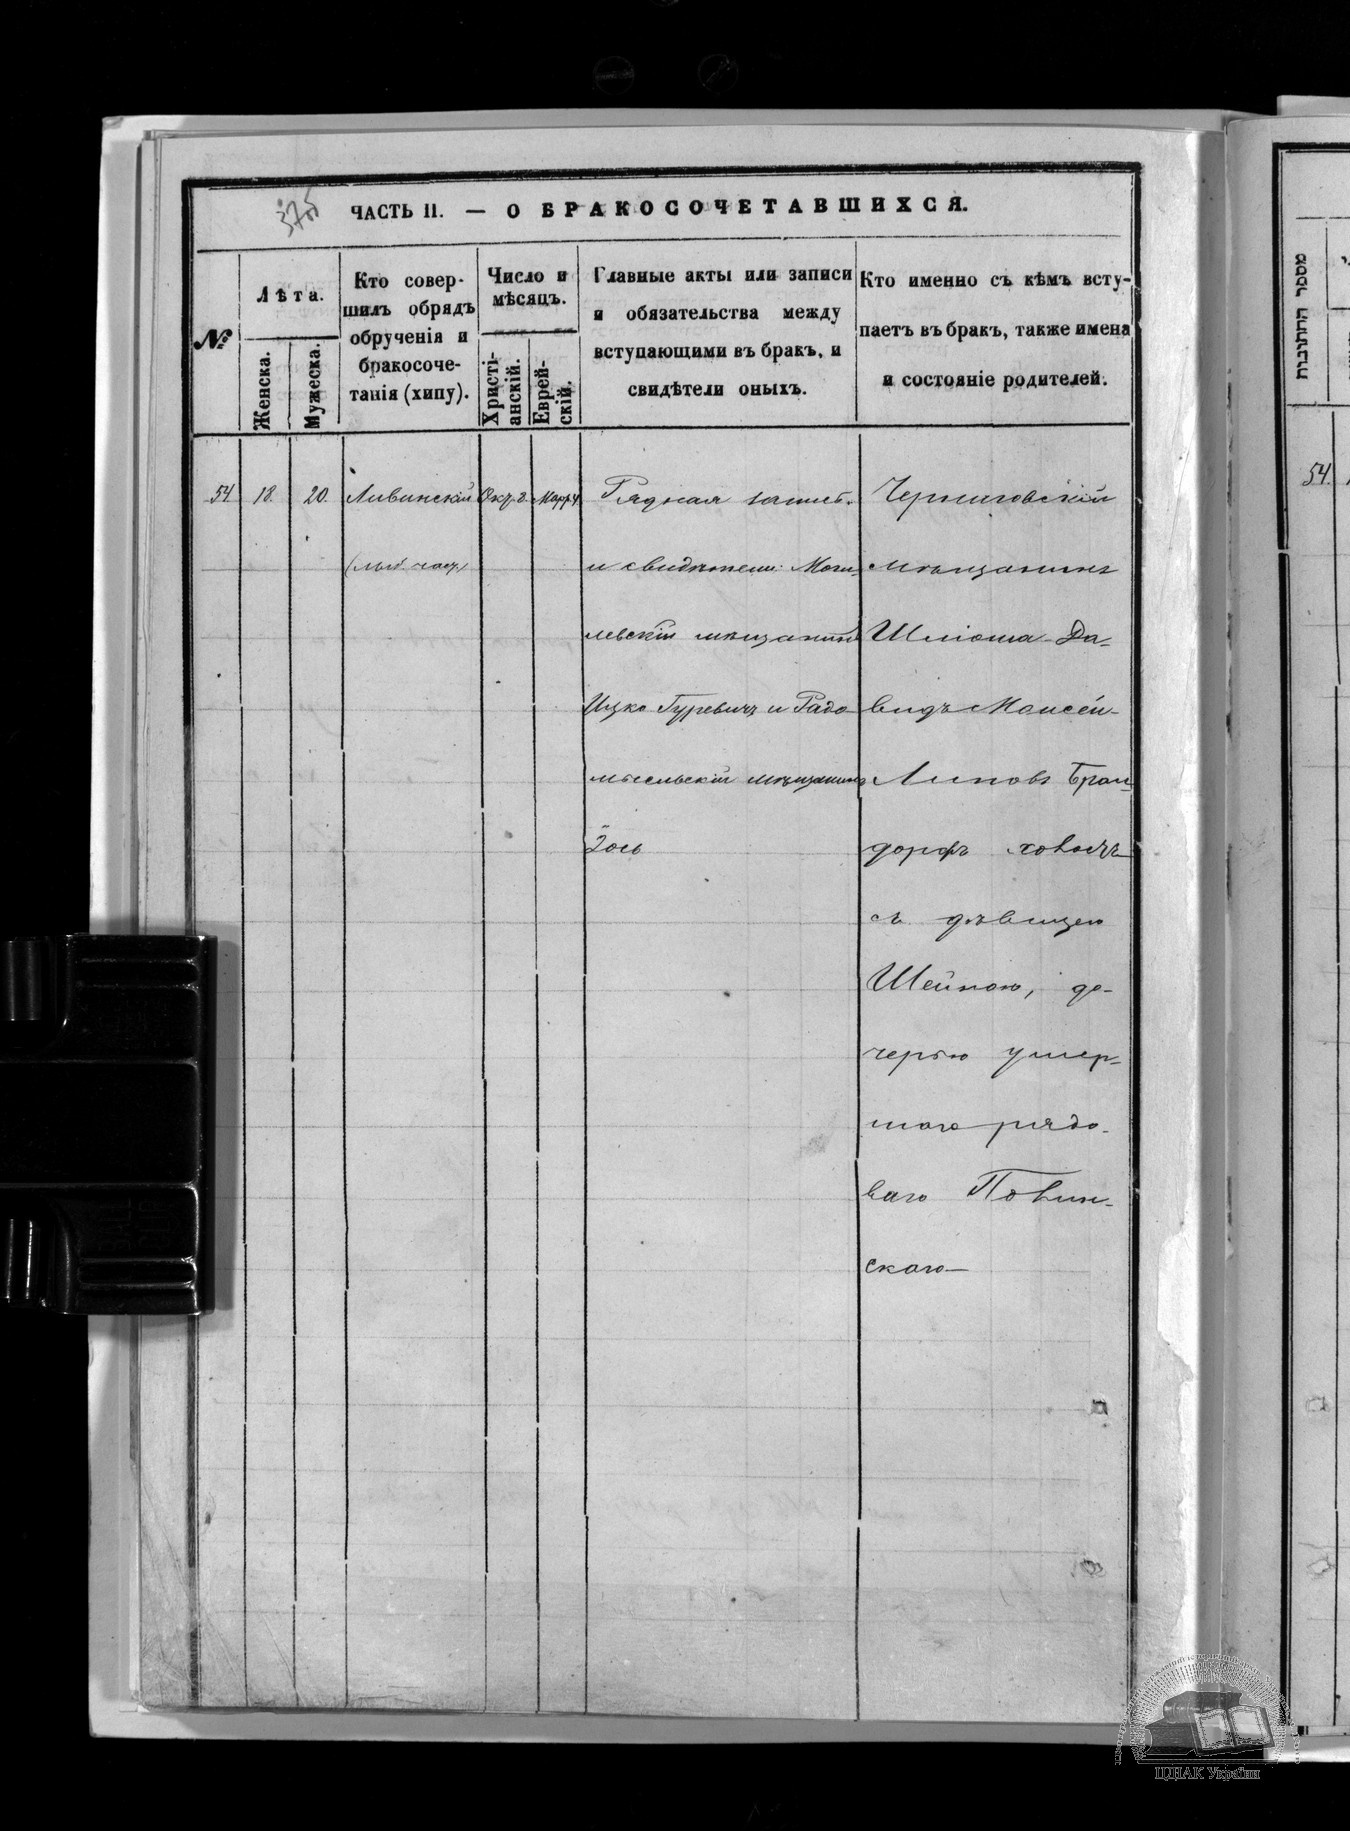 375
ЧАСТЬ II. — О БРАКОСОЧЕТАВШИХСЯ.
№
Лѣта.
Женска.
Мужеска.
Кто совер-
шилъ обрядъ
обрученія и
бракосоче-
танія (хипу).
Число и
мѣсяцъ.
Христі-
анскій.
Еврей-
скій.
Главные акты или записи
и обязательства между
вступающими въ бракъ, и
свидѣтели оныхъ.
Кто именно съ кѣмъ всту-
паетъ въ бракъ, также имена
и состояніе родителей.
54
18.
20.
Ливинскій
Рядная
и свидѣтели: Моги-
левскій мѣщанинъ
Ицко Гуревичъ и Радо-
мысльскій мѣщанинъ
Зось
Черниговскій
мѣщанинъ
Шліома-Да-
видъ Моисей-
Липовъ Бран-
дорфъ холостъ
съ дѣвицею
Шейною, до-
черью умер-
шаго рядо-
ваго Повин-
скаго—
מספר החתונות
54.
ЦДІАК України